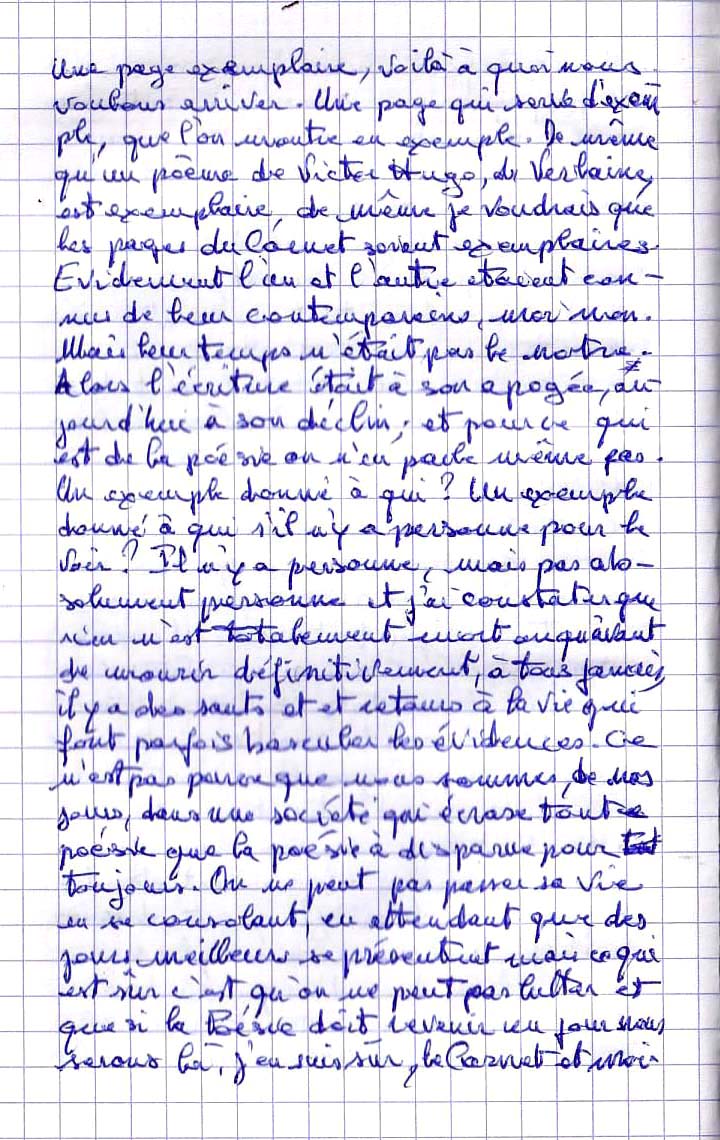 Une page exemplaire, voilà à quoi nous
voulons arriver. Une page qui serve d'exem
ple, que l'on montre en exemple. De même
qu'un poème de Victor Hugo, de Verlaine,
est exemplaire, de même je voudrais que
les pages du Carnet soient exemplaires.
Evidemment l'un et l'autre étaient con-
nus de leurs contemporains, moi non.
Mais leur temps n'était pas le notre.
Alors l'écriture était à son apogée, au
jourd'hui à son déclin; et pour ce qui
est de la poésie on n'en parle même pas.
Un exemple donné à qui? Un exemple
donné à qui s'il n'y a personne pour le
voir? Il n'y a personne, mais pas abs-
solument personne et j'ai constater que
rien n'est totalement mort ou qu'avant
de mourir définitivement, à tous jamais,
il y a des sauts et et retours à la vie qui
font parfois basculer les évidences. Ce
n'est pas parce que nous sommes, de nos
jours, dans une société qui écrase toute
poésie que la poésie à disparue pour
toujours. On ne peut pas passer sa vie
en se consolant, en attendant que des
jours meilleurs se présentent mais ce qui
est sûr c'est qu'on ne peut pas lutter et
que si la Poésie doit revenir un jour nous
serons là, j'en suis sûr, le Carnet et moi.